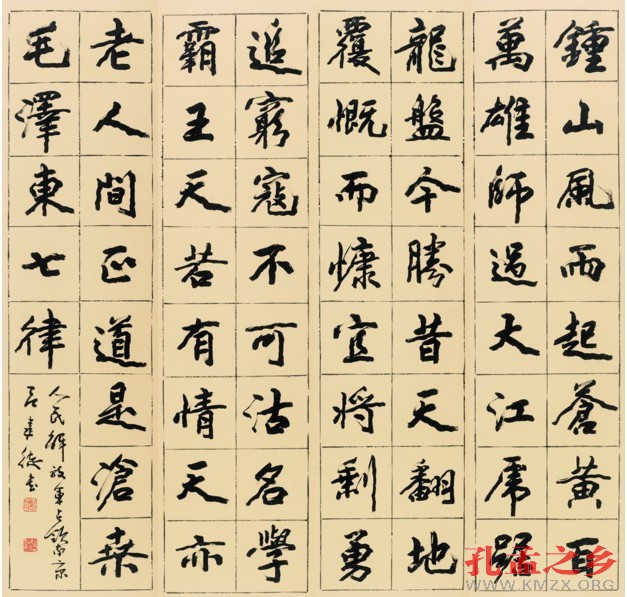 鍾山風雨起蒼黃百
萬雄師過大江虎踞
龍盤今勝昔天翻地
覆慨而慷宜將剩勇
追窮寇不可沽名學
霸王天若有情天亦
老人間正道是滄桑
毛澤東七律
人民解放軍占領南京
孔孟之乡
WWW.KMZX.ORG